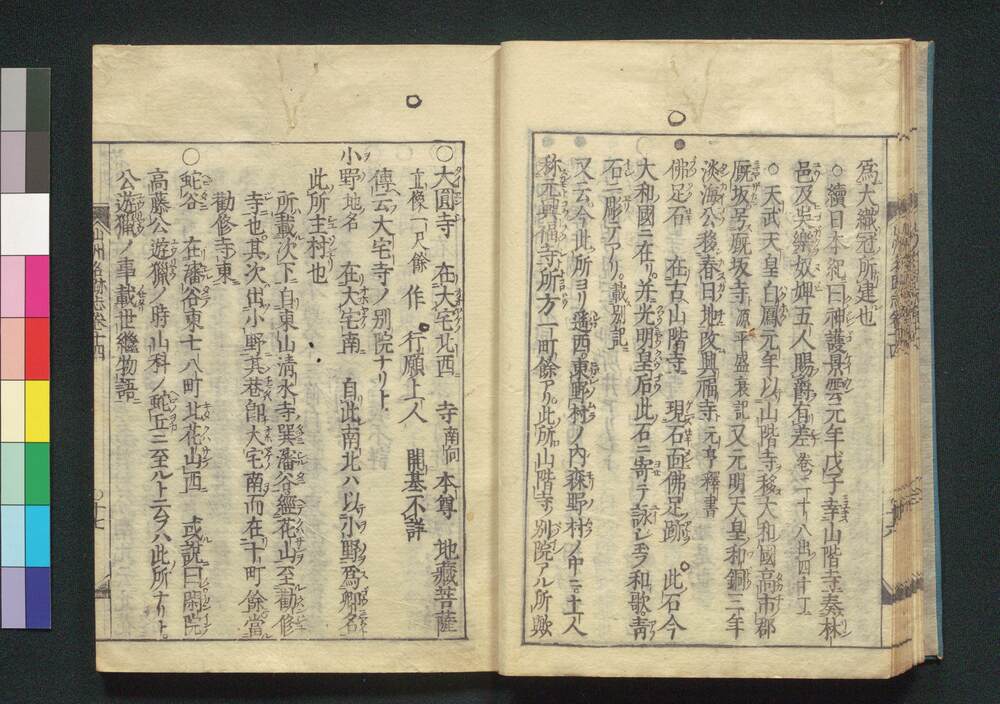 爲大織冠所建也
○續日本紀曰神護景雲元年戊子幸山階寺奏林
邑及吳樂奴婢五人賜爵有差 卷二十八出四十丁
○天武天皇白鳳元年以山階寺移大和國高市郡
厩坂号厩坂寺 源平盛衰記 又元明天皇和銅三年
淡海公移春日地改興福寺 元亨釋書
佛足石 在古山階寺 現石面佛足跡 此石今
大和國ニ在リ并光明皇后此石ニ寄テ詠レ玉フ和歌靑
石ニ彫テアリ載別記
又云今此所ヨリ遥西東野村ノ内森野村ノ中ニ土人
称元興福寺所方一町餘アリ此所山階寺ノ別院アル所歟
○大圓寺 在大宅北西 寺南向 本尊 地藏菩薩
立像一尺餘 作 行願上人 開基不詳
傳云大宅寺ノ別院ナリト
小野地名 在大宅南 自此南北八以小野爲郷名
此所主村也
所載次下自東山清水寺巽潘谷經花山至勸修
寺也其次出小野其巷自大宅南而在十町餘當
勸修寺東
○蛇谷 在潘谷東七八町北花山西 或說曰閑院
高藤公遊獵ノ時山科ノ蛇丘ニ至ルト云フハ此所ナリト
公遊獵ノ事載世繼物語
山州名跡志卷十四
○十七